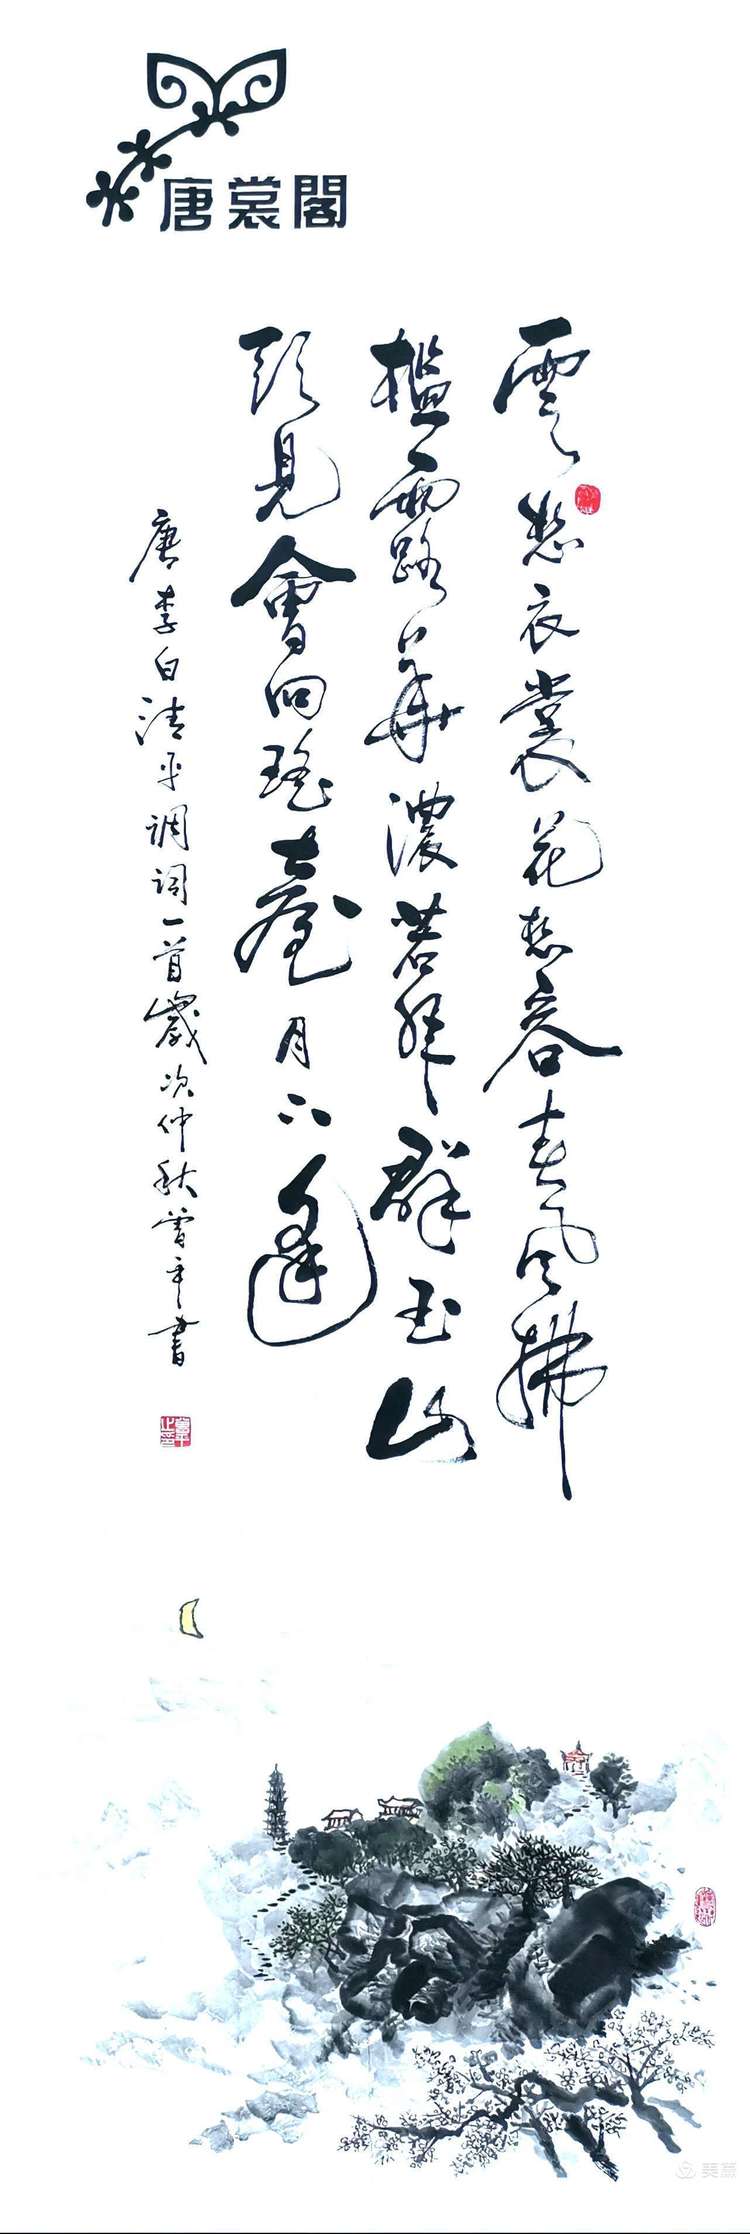 唐裳閣
雲想衣裳花想容春風拂
檻露華濃若非群玉山
頭見會向瑤臺月下逢
唐李白清平调词一首歲次仲秋曾平書
美篇